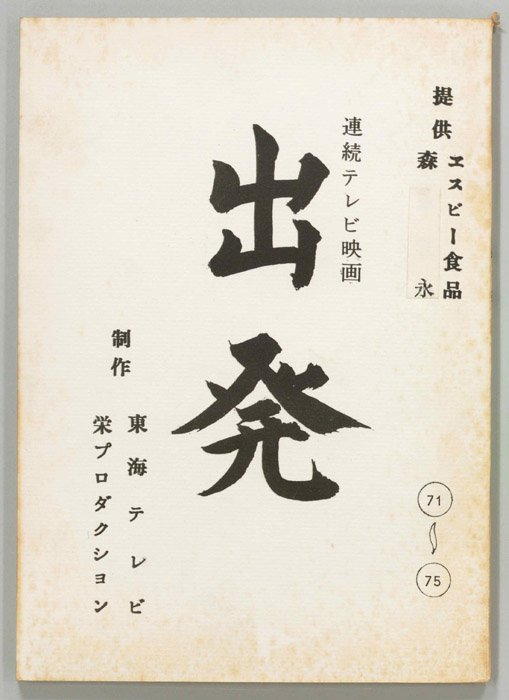 提供
エスビー食品
森永
連続テレビ映画
出発
制作
東海テレビ
栄プロダクション
71
〜
75